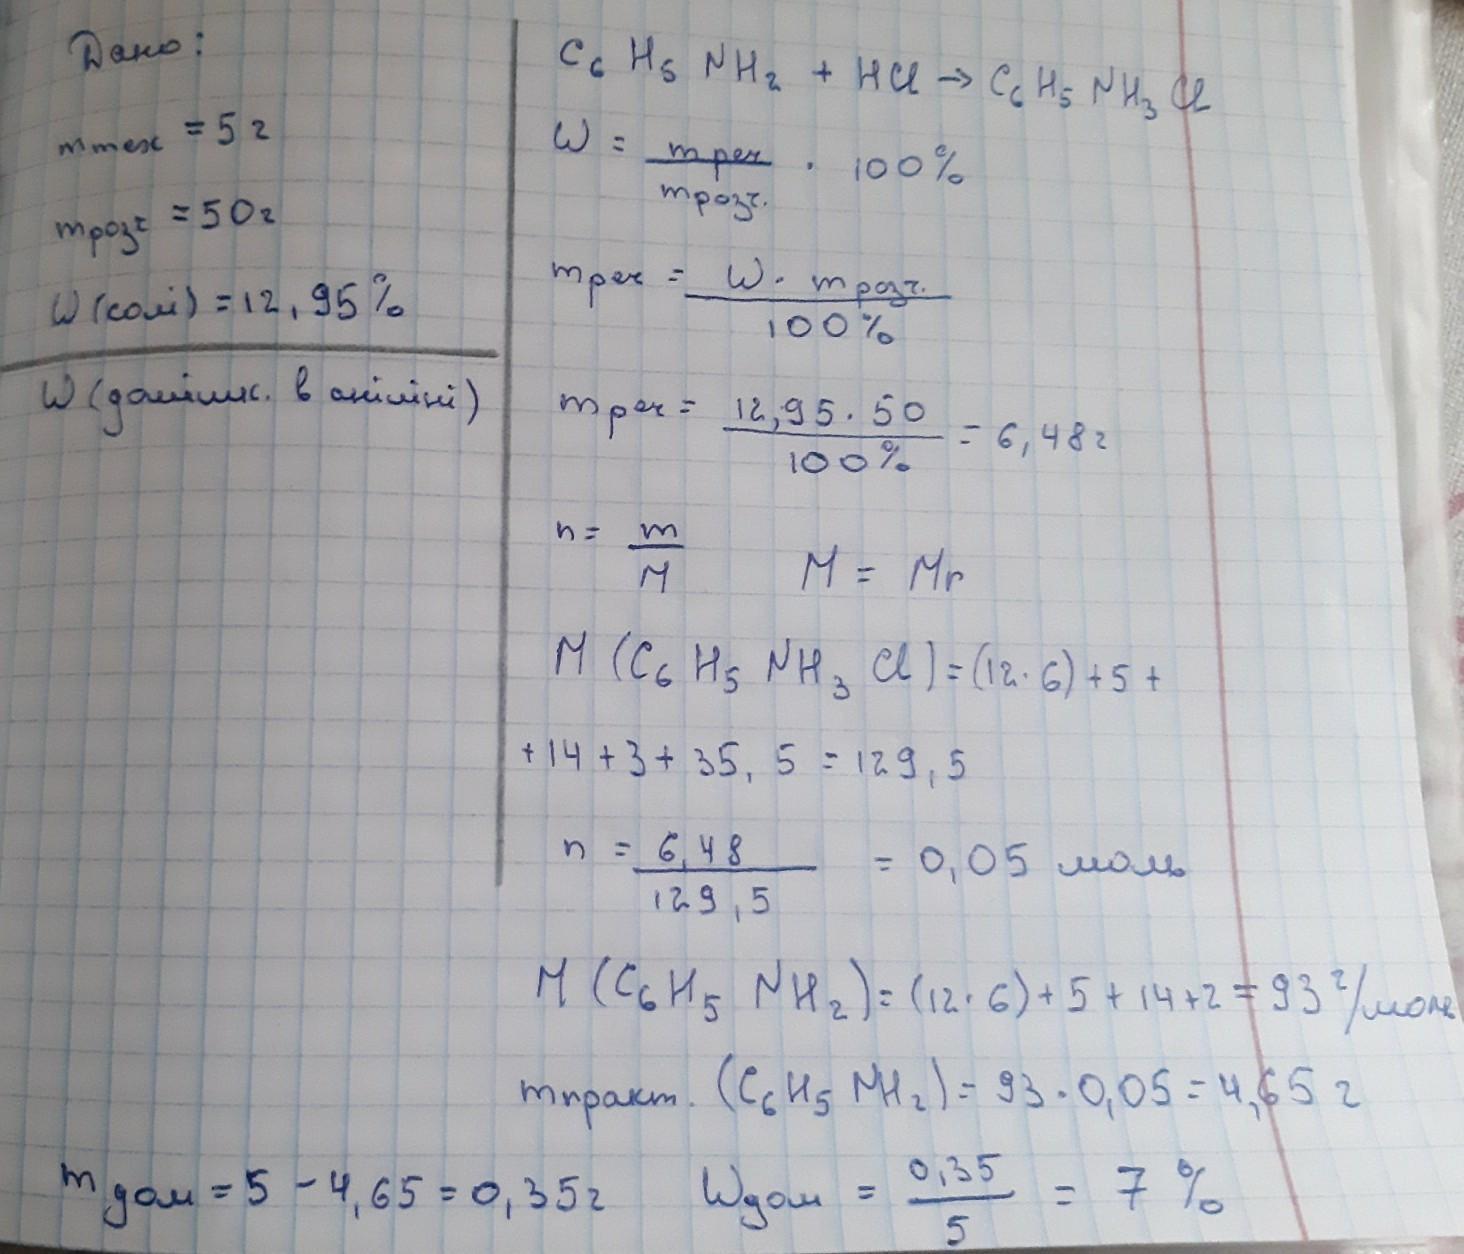 Дано:
mтех = 5г
mрозч = 50г
W(солі) = 12,95%
W(домішк. в аніліні)
C₆H₅NH₂ + HCl → C₆H₅NH₃Cl
W = mреч / mрозч. · 100%
mреч = W · mрозч. / 100%
mреч = 12,95 · 50 / 100% = 6,48г
n = m / M    M = Mr
M(C₆H₅NH₃Cl) = (12·6) + 5 +
+ 14 + 3 + 35,5 = 129,5
n = 6,48 / 129,5 = 0,05 моль
M(C₆H₅NH₂) = (12·6) + 5 + 14 + 2 = 93 г/моль
mпракт. (C₆H₅NH₂) = 93 · 0,05 = 4,65 г
mдом = 5 - 4,65 = 0,35г    Wдом = 0,35 / 5 = 7 %